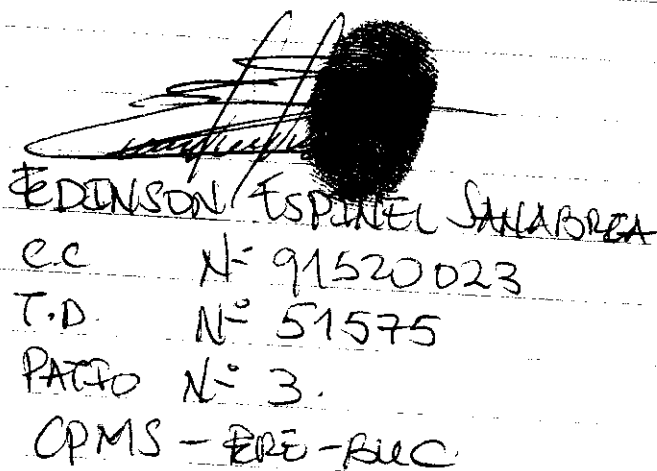 EDINSON ESPINEL SANABRIA
CC N° 91520023
T.D. N° 51575
PATIO N° 3.
CPMS - ERE - BUC